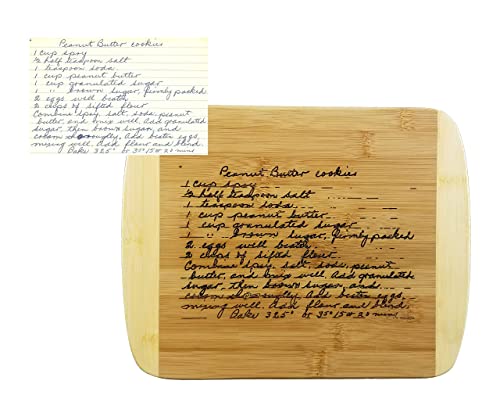 Peanut Butter cookies
1 cup spry
½ half teaspoon salt
1 teaspoon soda
1 cup peanut butter
1 cup granulated sugar
1 " brown sugar, firmly packed
2 eggs well beaten
2 cups of sifted flour
Combine spry, salt, soda, peanut
butter, and mix well. Add granulated
sugar, then brown sugar, and
cream thoroughly. Add beaten eggs,
mixing well. Add flour and blend.
Bake 325° or 35° 15 or 20 mins
Peanut Butter cookies
1 cup spry
½ half teaspoon salt
1 teaspoon soda
1 cup peanut butter
1 cup granulated sugar
1 " brown sugar, firmly packed
2 eggs well beaten
2 cups of sifted flour
Combine spry, salt, soda, peanut
butter, and mix well. Add granulated
sugar, then brown sugar, and
cream thoroughly. Add beaten eggs,
mixing well. Add flour and blend.
Bake 325° or 35° 15 or 20 mins